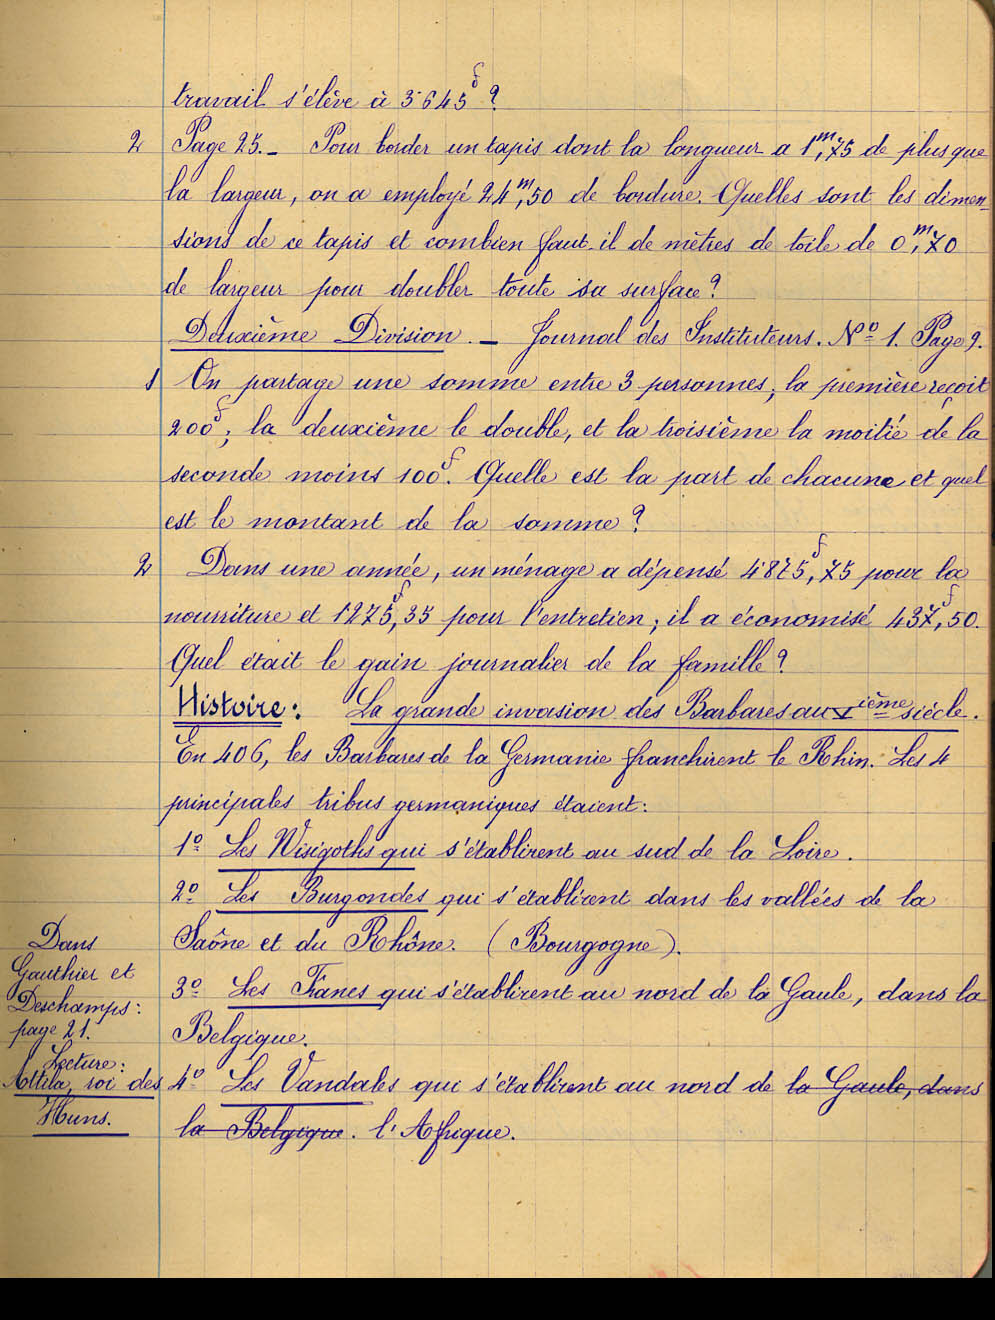 travail s'élève à 3645f ?
2 Page 25. _ Pour border un tapis dont la longueur a 1m,75 de plus que
la largeur, on a employé 24m,50 de bordure. Quelles sont les dimen-
sions de ce tapis et combien faut-il de mètres de toile de 0m,70
de largeur pour doubler toute sa surface ?
Deuxième Division. _ Journal des Instituteurs. Nº 1. Page 9.
1 On partage une somme entre 3 personnes ; la première reçoit
200f ; la deuxième le double, et la troisième la moitié de la
seconde moins 100f. Quelle est la part de chacune et quel
est le montant de la somme ?
2 Dans une année, un ménage a dépensé 4875f,75 pour la
nourriture et 1275f,35 pour l'entretien ; il a économisé 437f,50.
Quel était le gain journalier de la famille ?
Histoire : La grande invasion des Barbares au Vième siècle.
En 406, les Barbares de la Germanie franchirent le Rhin. Les 4
principales tribus germaniques étaient :
1º Les Wisigoths qui s'établirent au sud de la Loire.
2º Les Burgondes qui s'établirent dans les vallées de la
Saône et du Rhône. (Bourgogne).
3º Les Francs qui s'établirent au nord de la Gaule, dans la
Belgique.
4º Les Vandales qui s'établirent au nord de la Gaule, dans
la Belgique. l'Afrique.
Dans
Gauthier et
Deschamps :
page 21.
Lecture :
Attila, roi des
Huns.